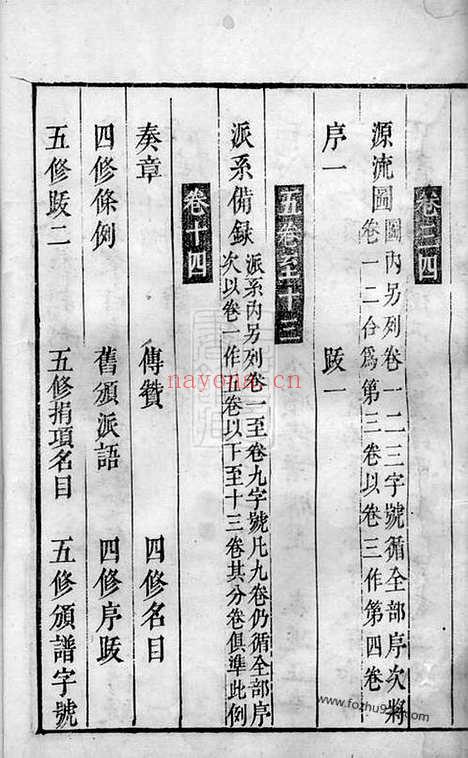 卷三四
源流圖 圖內另列卷一二三字號循全部序次將
卷一二合爲第三卷以卷三作第四卷
序一 跋一
五卷至十三
派系備録 派系內另列卷一至卷九字號凡九卷仍循全部序
次以卷一作五卷以下至十三卷其分卷俱準此例
卷十四
奏章 傳贊 四修名目
四修條例 舊頒派語 四修序跋
五修跋二 五修捐項名目 五修頒譜字號
nayona.cn
www.fozhu9